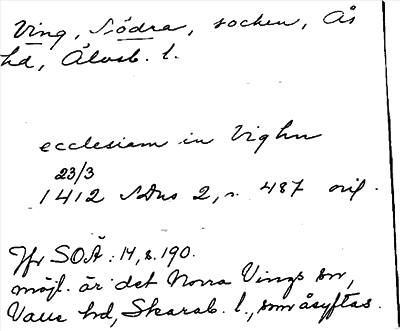 Ving, Södra, socken, Ås
hd, Älvsb. l.
ecclesiam in Vighn
23/3
1412 SDns 2, s. 487 orig.
Jfr SOÄ: 14, s. 190.
möjl. är det Norra Vings sn,
Valle hd, Skarab. l., som åsyftas.